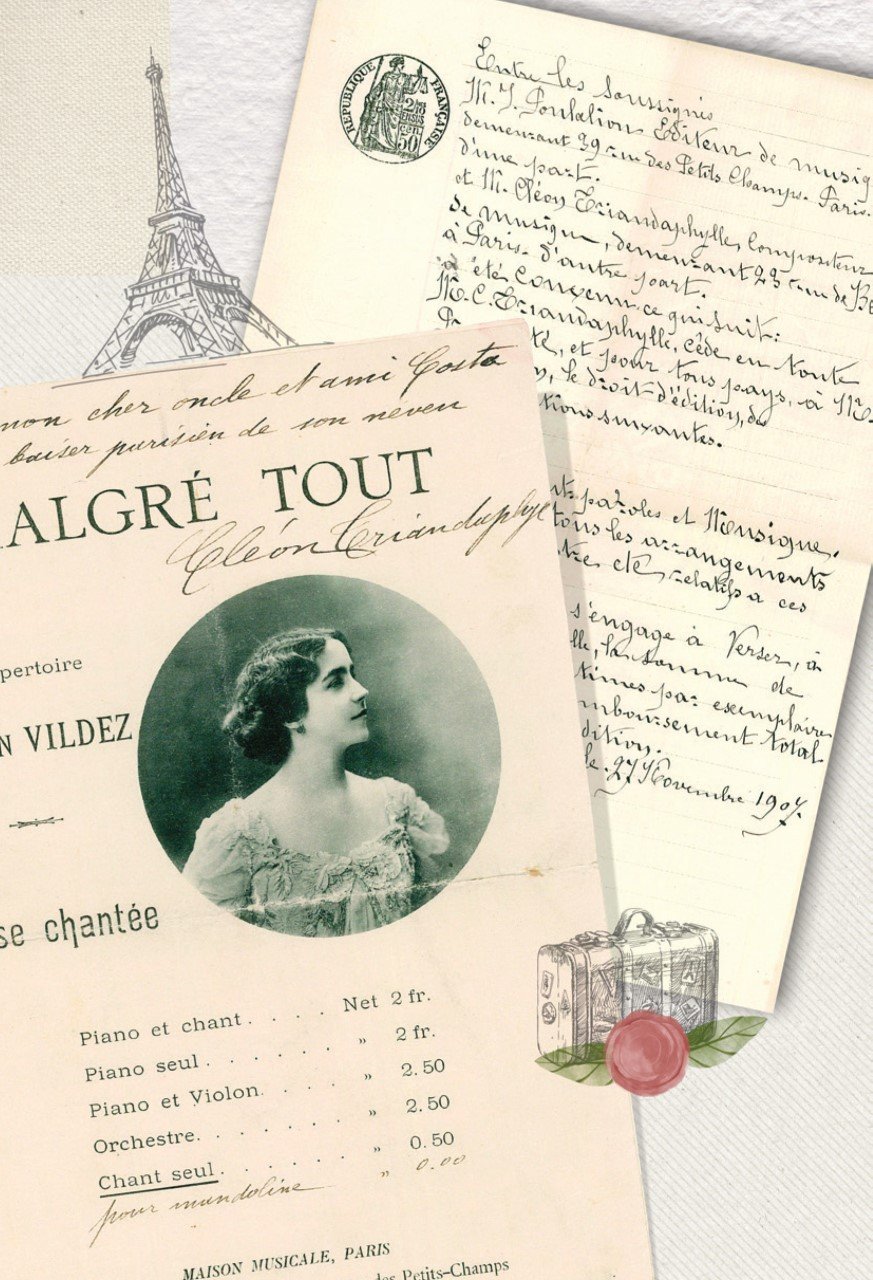 RÉPUBLIQUE FRANÇAISE
50
Entre les Soussignés
M. J. Editeur de musiq
demeurant 39 rue des Petits Champs. Paris.
d'une part.
et M. Cléon Triandaphylle, Compositeur
de musique, demeurant 23 rue de
à Paris. d'autre part.
a été convenu ce qui suit:
M. C. Triandaphylle, cède en toute
té, et pour tous pays, à M.
n, le droit d'édition, de
tions suivantes.
paroles et Musique.
tous les arrangements
tre, etc. relatifs à ces
s'engage à Verser, à
lle, la somme de
times par exemplaire
mboursement total
dition.
le 27 Novembre 1907.
mon cher oncle et ami Costa
baiser parisien de son neveu
ALGRÉ TOUT
Cléon Triandaphyl
pertoire
N VILDEZ
se chantée
Piano et chant . . . . Net 2 fr.
Piano seul . . . . . . „ 2 fr.
Piano et Violon. . . . . „ 2.50
Orchestre. . . . . . . „ 2.50
Chant seul . . . . . . „ 0.50
pour mandoline „ 0.00
MAISON MUSICALE, PARIS
des Petits-Champs